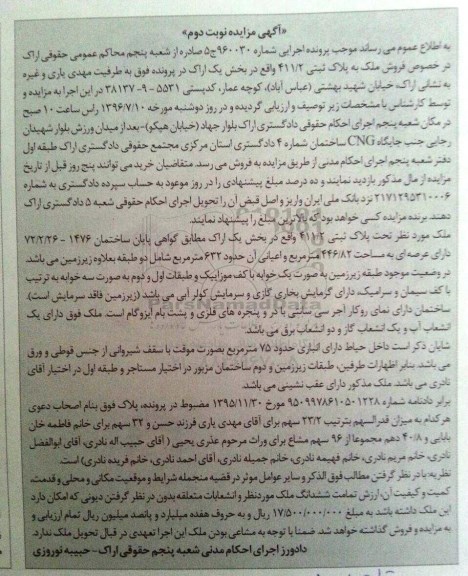 «آگهی مزایده نوبت دوم»
به اطلاع عموم می رساند موجب پرونده اجرایی شماره ۹۶۰۰۳۰ج۵ صادره از شعبه پنجم محاکم عمومی حقوقی اراک
در خصوص فروش ملک به پلاک ثبتی ۴۱۱/۲ واقع در بخش یک اراک در پرونده فوق به ظرفیت مهدی یاری و غیره
به نشانی اراک، خیابان شهید بهشتی (عباس آباد)، کوچه عمار، کدپستی ۵۵۳۱ – ۳۸۱۳۷۰۹ در این اجرا به مزایده و
توسط کارشناس با مشخصات زیر توصیف و ارزیابی گردیده و در روز دوشنبه مورخه ۱۳۹۶/۷/۱۰ راس ساعت ۱۰ صبح
در مکان شعبه پنجم اجرای احکام حقوقی دادگستری اراک بلوار جهاد (خیابان هپکو)-بعد از میدان ورزش بلوار شهیدان
رجایی جنب جایگاه CNG ساختمان شماره ۴ دادگستری استان مرکزی مجتمع حقوقی دادگستری اراک طبقه اول
دفتر شعبه پنجم اجرای احکام مدنی از طریق مزایده به فروش می رسد. متقاضیان خرید می توانند پنج روز قبل از تاریخ
مزایده از مال مذکور بازدید نمایند و ده درصد مبلغ پیشنهادی را در روز موعود به حساب سپرده دادگستری به شماره
۲۱۷۱۲۹۵۳۱۰۰۰۶ نزد بانک ملی ایران واریز و اصل قبض آن را تحویل اجرای احکام حقوقی شعبه ۵ دادگستری اراک
دهند. برنده مزایده کسی خواهد بود که بالاترین مبلغ را پیشنهاد نمایند.
ملک مورد نظر تحت پلاک ثبتی ۴۱۱/۲ واقع در بخش یک اراک مطابق گواهی پایان ساختمان ۱۴۷۶ – ۷۲/۲/۲۶
دارای عرصه ای به مساحت ۴۴۶/۸۲ مترمربع و اعیانی آن حدود ۶۳۲ مترمربع شامل دو طبقه بعلاوه زیرزمین می باشد.
در وضعیت موجود طبقه زیرزمین به صورت یک خوابه با کف موزاییک و طبقات اول و دوم به صورت سه خوابه به ترتیب
با کف سیمان و سرامیک، دارای گرمایش بخاری گازی و سرمایش کولر آبی می باشد (زیرزمین فاقد سرمایش است).
ساختمان دارای نمای روکار آجر سی سانتی با در و پنجره های فلزی و پشت بام ایزوگام است. ملک فوق دارای یک
انشعاب آب و یک انشعاب گاز و دو انشعاب برق می باشد.
شایان ذکر است داخل حیاط دارای انباری حدود ۷۵ مترمربع بصورت موقت با سقف شیروانی از جنس قوطی و ورق
می باشد. بنابر اظهارات طرفین، طبقات زیرزمین و دوم ساختمان مزبور در اختیار مستاجر و طبقه اول در اختیار آقای
نادری می باشد. ملک مذکور دارای عقب نشینی می باشد.
برابر دادنامه شماره ۹۵۰۹۹۷۸۶۱۰۵۰۱۲۲۸ مورخ ۱۳۹۵/۱۱/۳۰ مضبوط در پرونده، پلاک فوق بنام اصحاب دعوی
هر کدام به میزان قدرالسهم بترتیب ۲۳/۲ سهم برای آقای مهدی یاری فرزند حسن و ۳۲ سهم برای خانم فاطمه خان
بابایی و ۴۰/۸ دهم مجموعا از ۹۶ سهم مشاع برای وراث مرحوم عذری یحیی ( آقای حبیب اله نادری، آقای ابوالفضل
نادری، خانم مریم نادری، خانم فهیمه نادری، خانم جمیله نادری، آقای احمد نادری، خانم فریده نادری) است.
نظریه: با در نظر گرفتن مطالب فوق الذکر و سایر عوامل موثر در قضیه منجمله شرایط و موقعیت مکانی و محلی و قدمت،
کمیت و کیفیت آن، ارزش تمامت ششدانگ ملک موردنظر و انشعابات متعلقه بدون در نظر گرفتن دیونی که امکان دارد
این ملک داشته باشد به مبلغ ۱۷/۵۰۰/۰۰۰/۰۰۰ ریال و به حروف هفده میلیارد و پانصد میلیون ریال تمام ارزیابی و
به مزایده و فروش گذاشته خواهد شد. ضمنا با توجه به مشاعی بودن ملک این اجرا تعهدی در قبال تحویل ملک ندارد.
دادورز اجرای احکام مدنی شعبه پنجم حقوقی اراک-حبیبه نوروزی